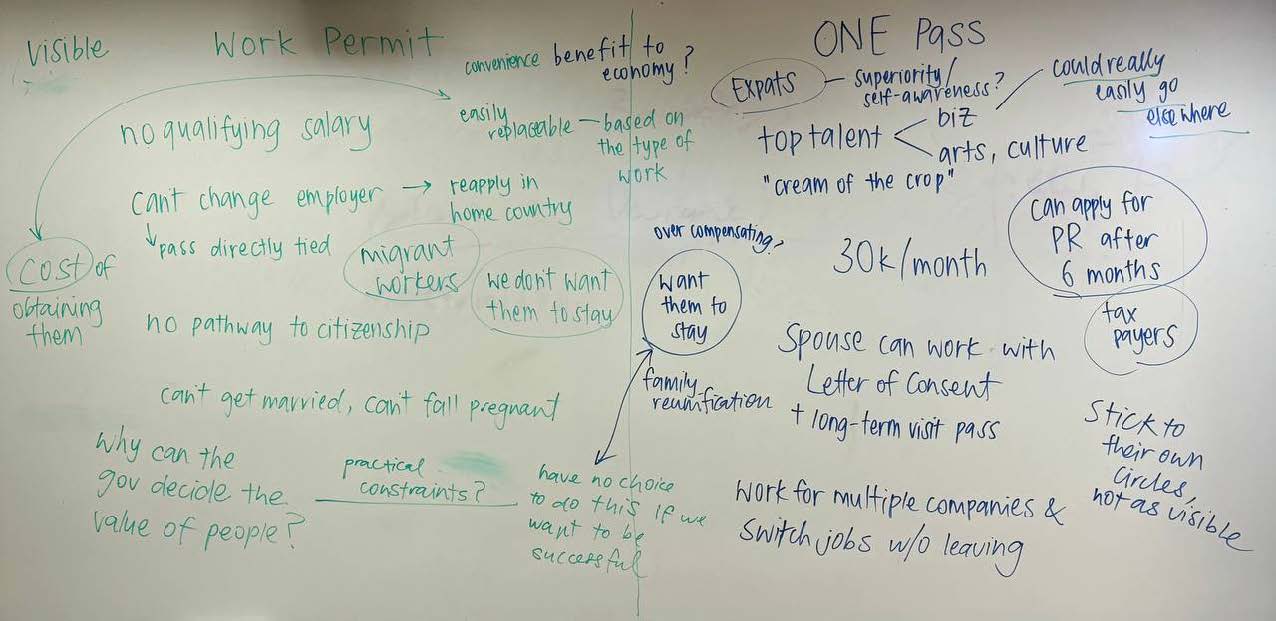 visible
Work Permit
convenience
benefit to
economy?
no qualifying salary
easily
replaceable — based on
the type of
work
can't change employer → reapply in
home country
↳ pass directly tied
migrant
workers
we don't want
them to stay
cost of
obtaining
them
no pathway to citizenship
can't get married, can't fall pregnant
Why can the
gov decide the
value of people?
practical
constraints?
have no choice
to do this if we
want to be
successful
ONE Pass
Expats — superiority/
self-awareness?
could really
easily go
elsewhere
top talent < biz
arts, culture
"cream of the crop"
over compensating?
want
them to
stay
30k/month
can apply for
PR after
6 months
tax
payers
Spouse can work with
Letter of Consent
+ long-term visit pass
family
reunification
Stick to
their own
circles,
not as visible
Work for multiple companies &
switch jobs w/o leaving